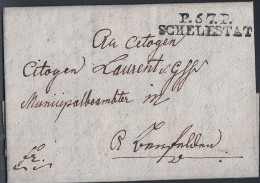 P.67.P.
SCHELESTAT
An Citoyen
Citoyen Laurent
Municipalbeambter in
Benfelden